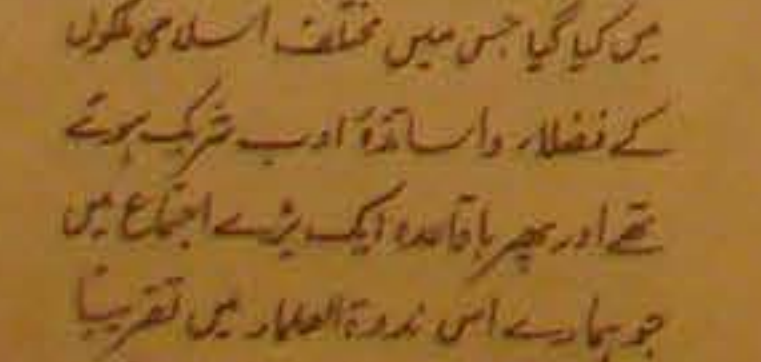 میں کیا گیا جس میں مختلف اسلامی ملکوں
کے فضلاء واساتذۂ ادب شریک ہوئے
تھے اور پھر باقاعدہ ایک بڑے اجتماع میں
جو ہمارے اس ندوۃ العلماء میں تقریباً